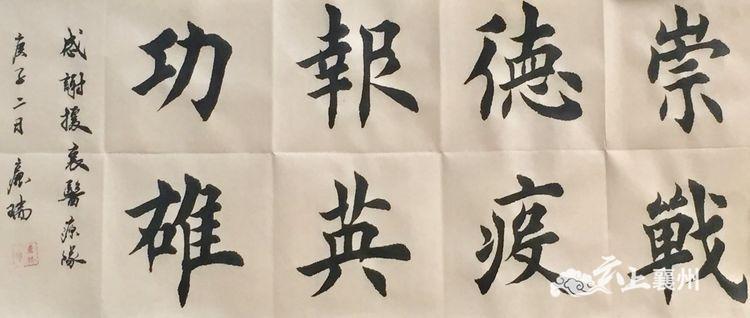 崇德報功
戰疫英雄
感謝援襄醫療隊
庚子二月
云上襄州